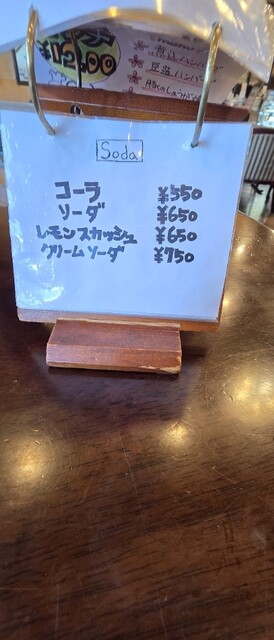 ¥1200
煮込ハンバ
豆腐ハンバ
豚のしょうが
Soda
コーラ ¥550
ソーダ ¥650
レモンスカッシュ ¥650
クリームソーダ ¥750